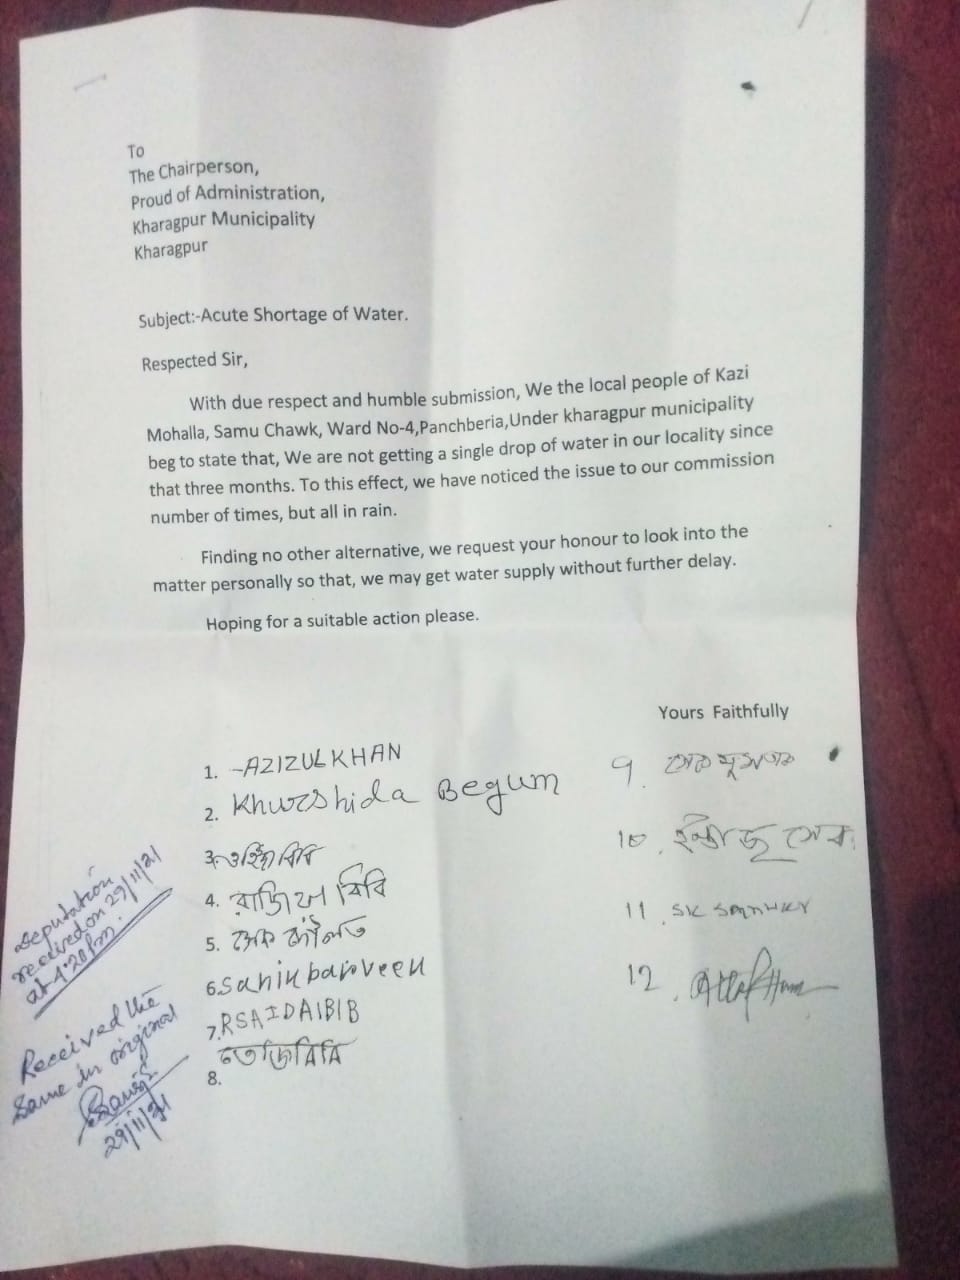 To
The Chairperson,
Proud of Administration,
Kharagpur Municipality
Kharagpur
Subject:-Acute Shortage of Water.
Respected Sir,
With due respect and humble submission, We the local people of Kazi
Mohalla, Samu Chawk, Ward No-4,Panchberia,Under kharagpur municipality
beg to state that, We are not getting a single drop of water in our locality since
that three months. To this effect, we have noticed the issue to our commission
number of times, but all in rain.
Finding no other alternative, we request your honour to look into the
matter personally so that, we may get water supply without further delay.
Hoping for a suitable action please.
Yours Faithfully
1. -AZIZUL KHAN
2. Khurshida Begum
3. বিবি
4. রাজিয়া বিবি
5. সেক দৌলত
6. parveen
7. RSAIDABIB
8.
9.
10.
11. SK
12.
Deputation
received on 29/11/21
at 4.20 pm.
Received the
same in original
29/11/21